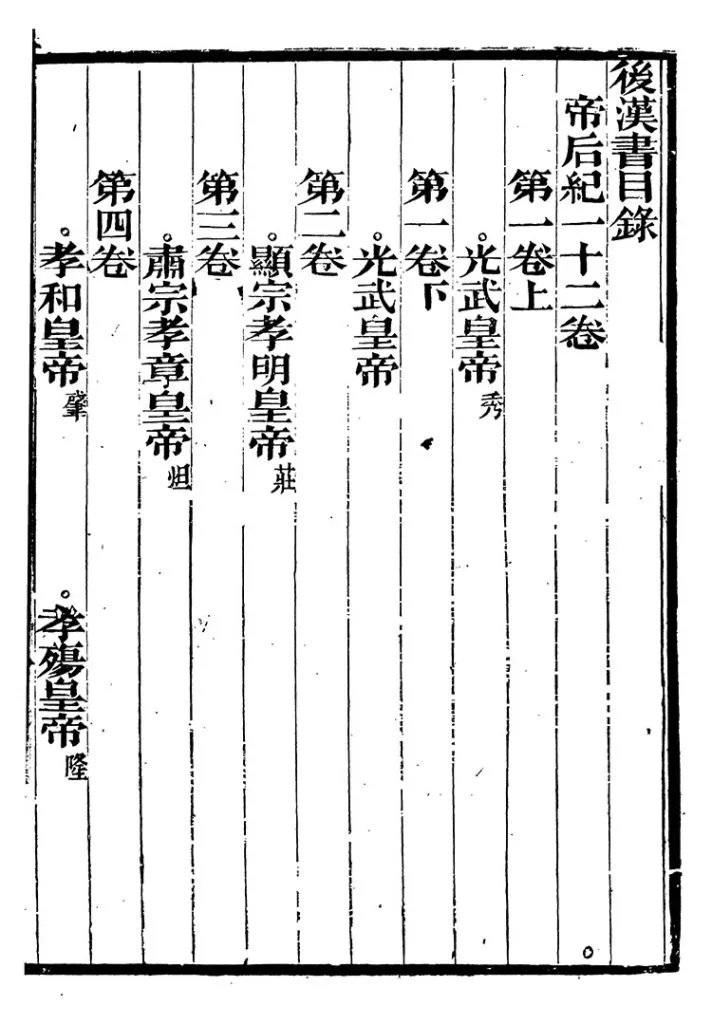 後漢書目錄
帝后紀一十二卷
第一卷上
。光武皇帝秀
第一卷下
。光武皇帝
第二卷
。顯宗孝明皇帝莊
第三卷
。肅宗孝章皇帝炟
第四卷
。孝和皇帝肇 。孝殤皇帝隆